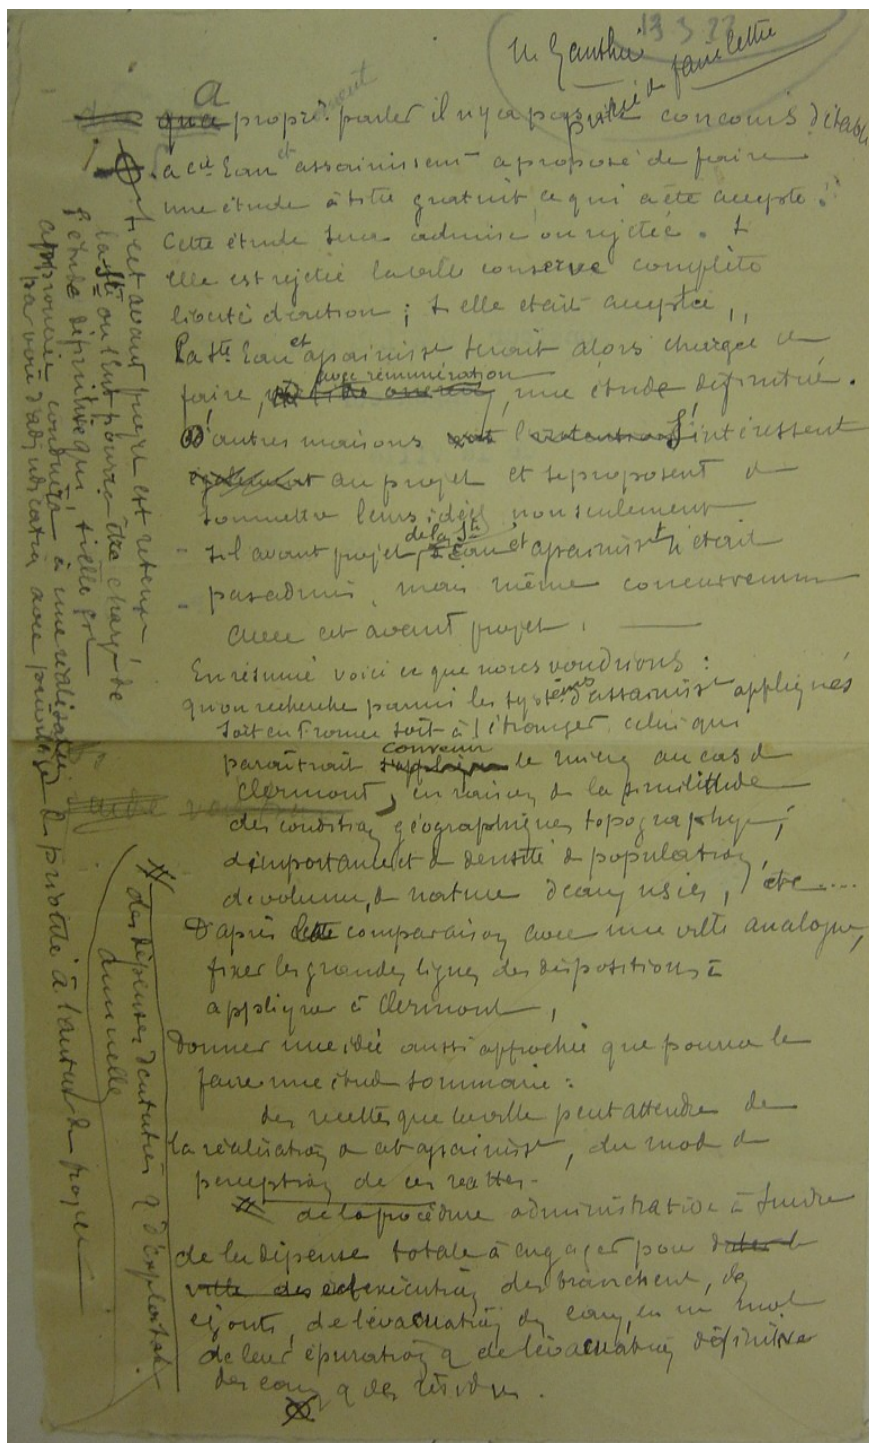 13 3 22
M. Gauthier
prière de faire lettre
A proprt parler il n'y a pas concours d'établ
La cie Eau et assainissent a proposé de faire
une étude à titre gratuit ce qui a été accepté.
Cette étude sera admise ou rejetée. Si
elle est rejetée la ville conserve complète
liberté d'action ; si elle était acceptée,
la Sté Eau et assainisst serait alors chargée de
faire, avec rémunération, une étude définitive.
D'autres maisons s'intéressent
au projet et se proposent de
soumettre leurs idées non seulement
si l'avant projet de la Sté Eau et assainisst n'était
pas admis, mais même concurremm
avec cet avant projet.
En résumé voici ce que nous voudrions :
qu'on recherche parmi les systèmes d'assainisst appliqués
soit en France soit à l'étranger celui qui
paraîtrait convenir le mieux au cas de
Clermont, en raison de la similitude
des conditions géographiques topographiq,
d'importance et de densité de population,
de volume, de nature d'eaux usées, etc....
D'après comparaison avec une ville analogue,
fixer les grandes lignes des dispositions à
appliquer à Clermont,
Donner une idée aussi approchée que pourra le
faire une étude sommaire :
des recettes que la ville peut attendre de
la réalisation de cet assainisst, du mode de
perception de ces recettes.
de la procédure administrative à suivre
de la dépense totale à engager pour
exécution des branchent, des
égouts, de l'évacuation des eaux, en un mot
de leur épuration & de l'évacuation définitive
des eaux & des résidus.
Si cet avant projet est retenu
la Sté ou l'Ent pourra être chargé de
l'étude définitive qui, si elle est
approuvée conduira à une réalisation
par voie d'adjudication avec privilège de priorité à l'auteur du projet
des dépenses d'entretien & d'exploitat.
annuelle